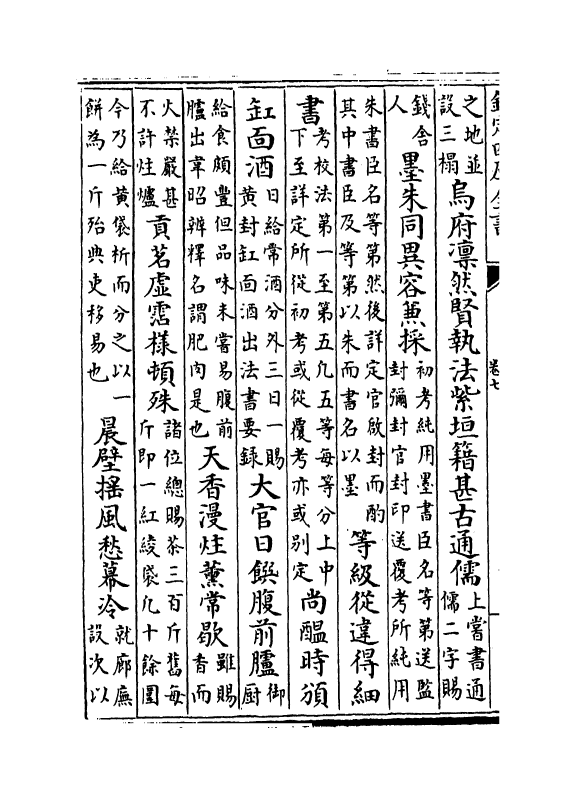 欽定四庫全書 卷七
之地並設三榻烏府凛然賢執法紫垣籍甚古通儒上嘗書通儒二字賜
錢舍人墨朱同異容兼採初考純用墨書臣名等第送監封彌封官封印送覆考所純用
朱書臣名等第然後詳定官啟封而酌其中書臣及等第以朱而書名以墨等級從違得細
書考校法第一至第五凡五等每等分上中下至詳定所從初考或從覆考亦或别定尚醖時頒
缸面酒日給常酒分外三日一賜黄封缸面酒出法書要錄大官日饌腹前臚御厨
給食頗豐但品味未嘗易腹前臚出韋昭辨釋名謂肥肉是也天香漫炷薰常歇雖賜香而
火禁嚴甚不許炷爐貢茗虚霑樣頓殊諸位總賜茶三百斤舊每斤即一紅綾袋凡十餘團
今乃給黄袋析而分之以一餅為一斤殆典吏移易也晨壁揺風愁幕冷就廊廡設次以